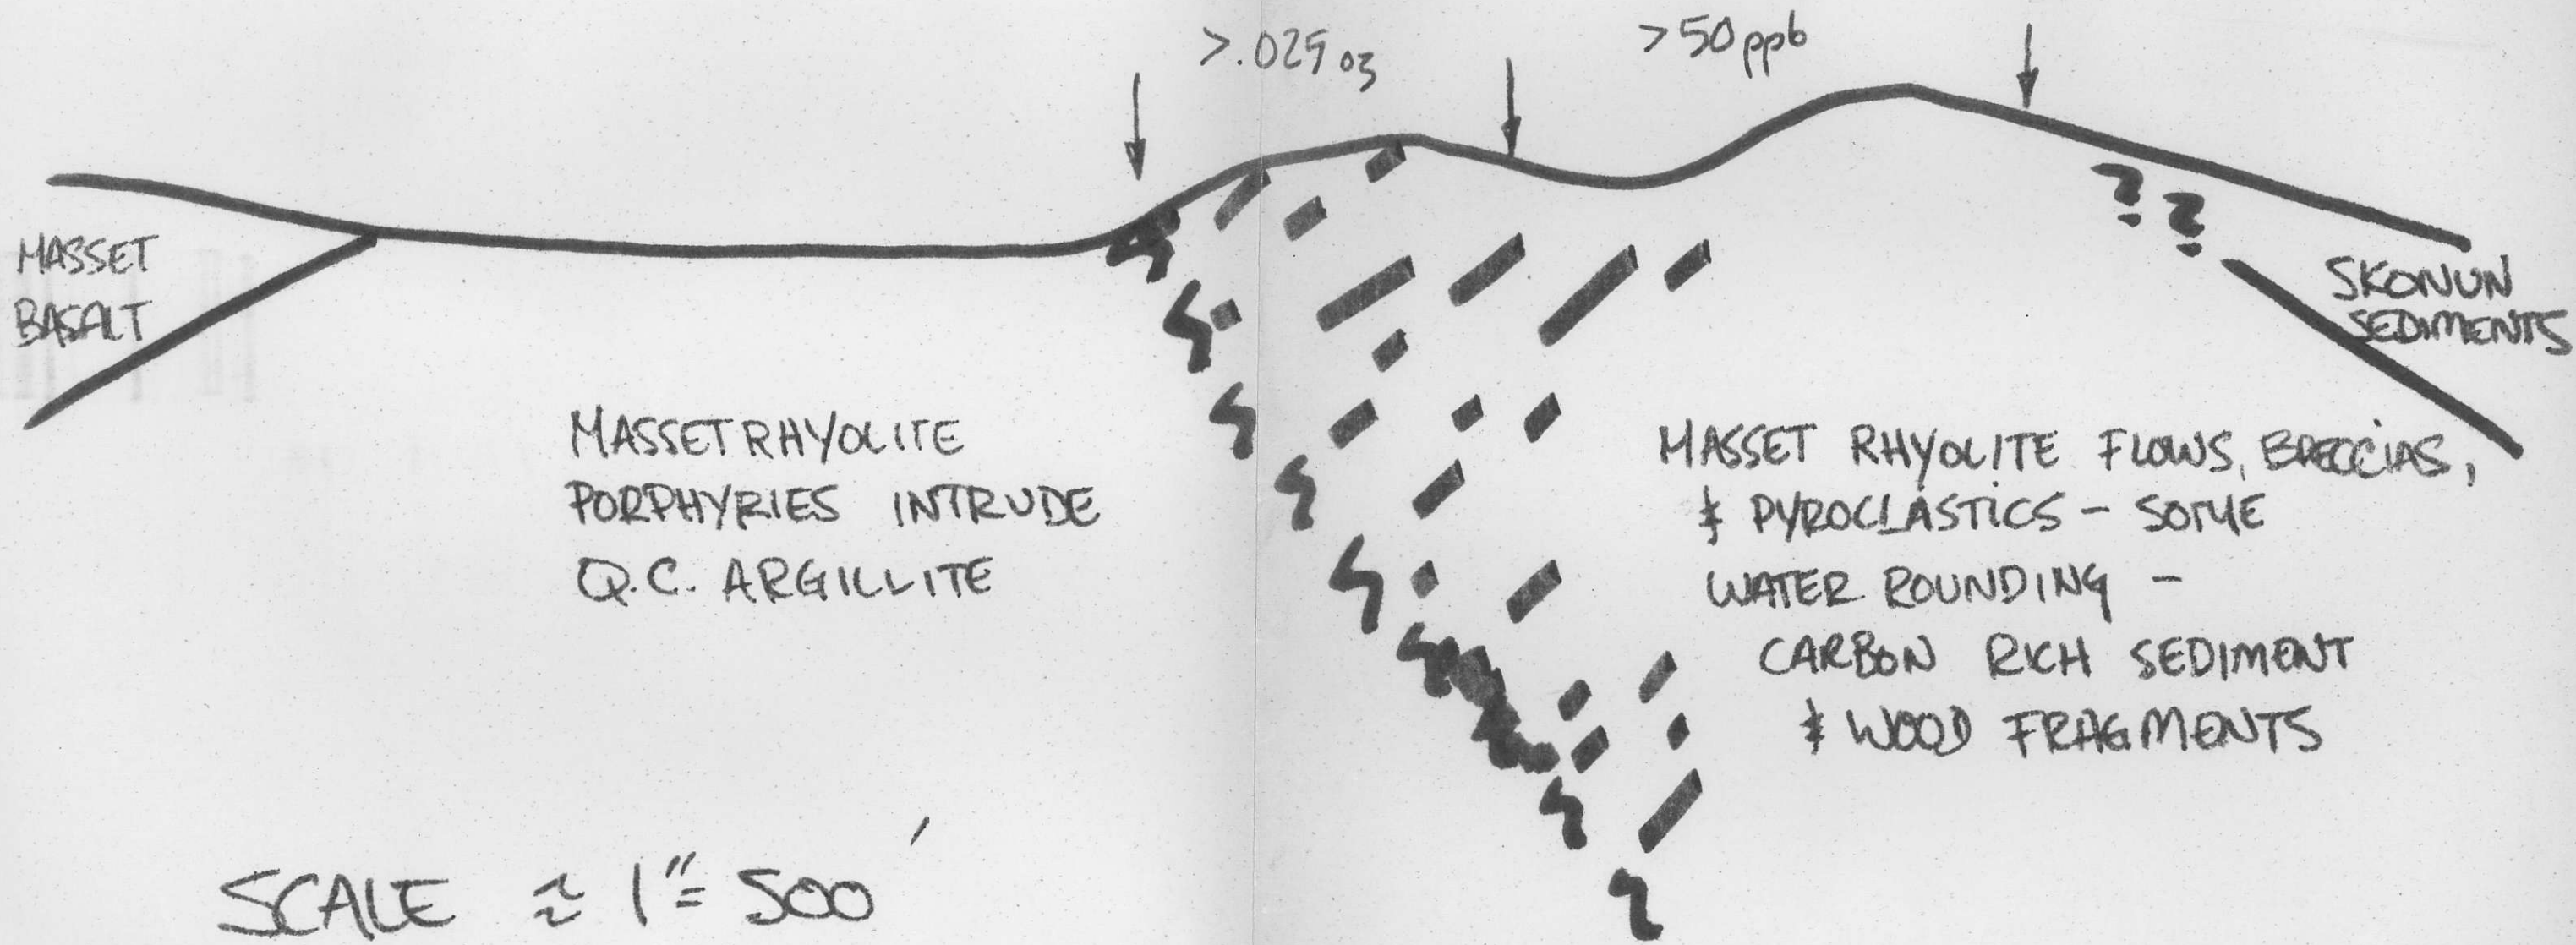 >.025 oz
>50 ppb
? ?
MASSET
BASALT
SKONUN
SEDIMENTS
MASSET RHYOLITE
PORPHYRIES INTRUDE
Q.C. ARGILLITE
MASSET RHYOLITE FLOWS, BRECCIAS,
& PYROCLASTICS - SOME
WATER ROUNDING -
CARBON RICH SEDIMENT
& WOOD FRAGMENTS
SCALE ≈ 1"= 500'